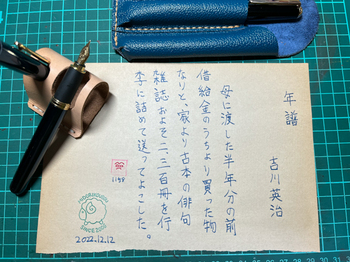 年譜
吉川英治
母に渡した半年分の前
借給金のうちより買った物
なりと、家より古本の俳句
雑誌およそ二、三百冊を行
李に詰めて送ってよこした。
1198
2022.12.12